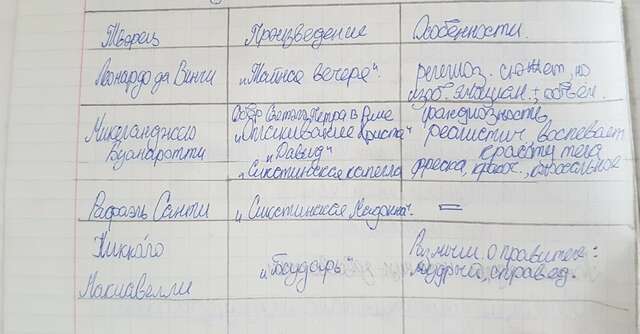 Творец Произведение Особенности.
Леонардо да Винчи „Тайная вечеря". религиоз. сюжет, но
изоб. эмоции + объём.
Микеланджело Собор Святого Петра в Риме грандиозность
„Оплакивание Христа" реалистич воспевает
Буанаротти „Давид" красоту тела
„Сикстинская капелла фреска, красоч.,
Рафаэль Санти „Сикстинская Мадонна".
Никколо
„Государь" Размыш. о правителе:
мудрый, справед.
Макиавелли